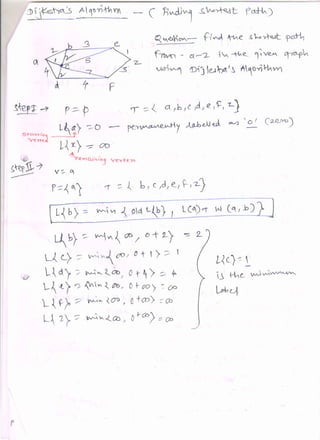 Dijketra's Algorithm — ( Finding shortest Path)
Question— find the shortest path
from a-z in the given graph
using Dijkstra's Algorithm
b 3 e
2 2 5 1
a 1 c 5 z
4 2 7 2
d 4 F
Step I → P = φ T = { a, b, c, d, e, F, z }
L{a} = 0 — permanently labelled as '0' (zero)
L{x} = ∞
remaining vertex
Step II → v = a
P = {a} T = { b, c, d, e, F, z }
L{b} = min { old L{b}, L(a) + w (a, b) }
L{b} = min { ∞, 0 + 2 } = 2
L{c} = min { ∞, 0 + 1 } = 1
L{d} = min { ∞, 0 + 4 } = 4
L{e} = min { ∞, 0 + ∞ } = ∞
L{F} = min { ∞, 0 + ∞ } = ∞
L{z} = min { ∞, 0 + ∞ } = ∞
L{c} = 1
is the minimum
Label